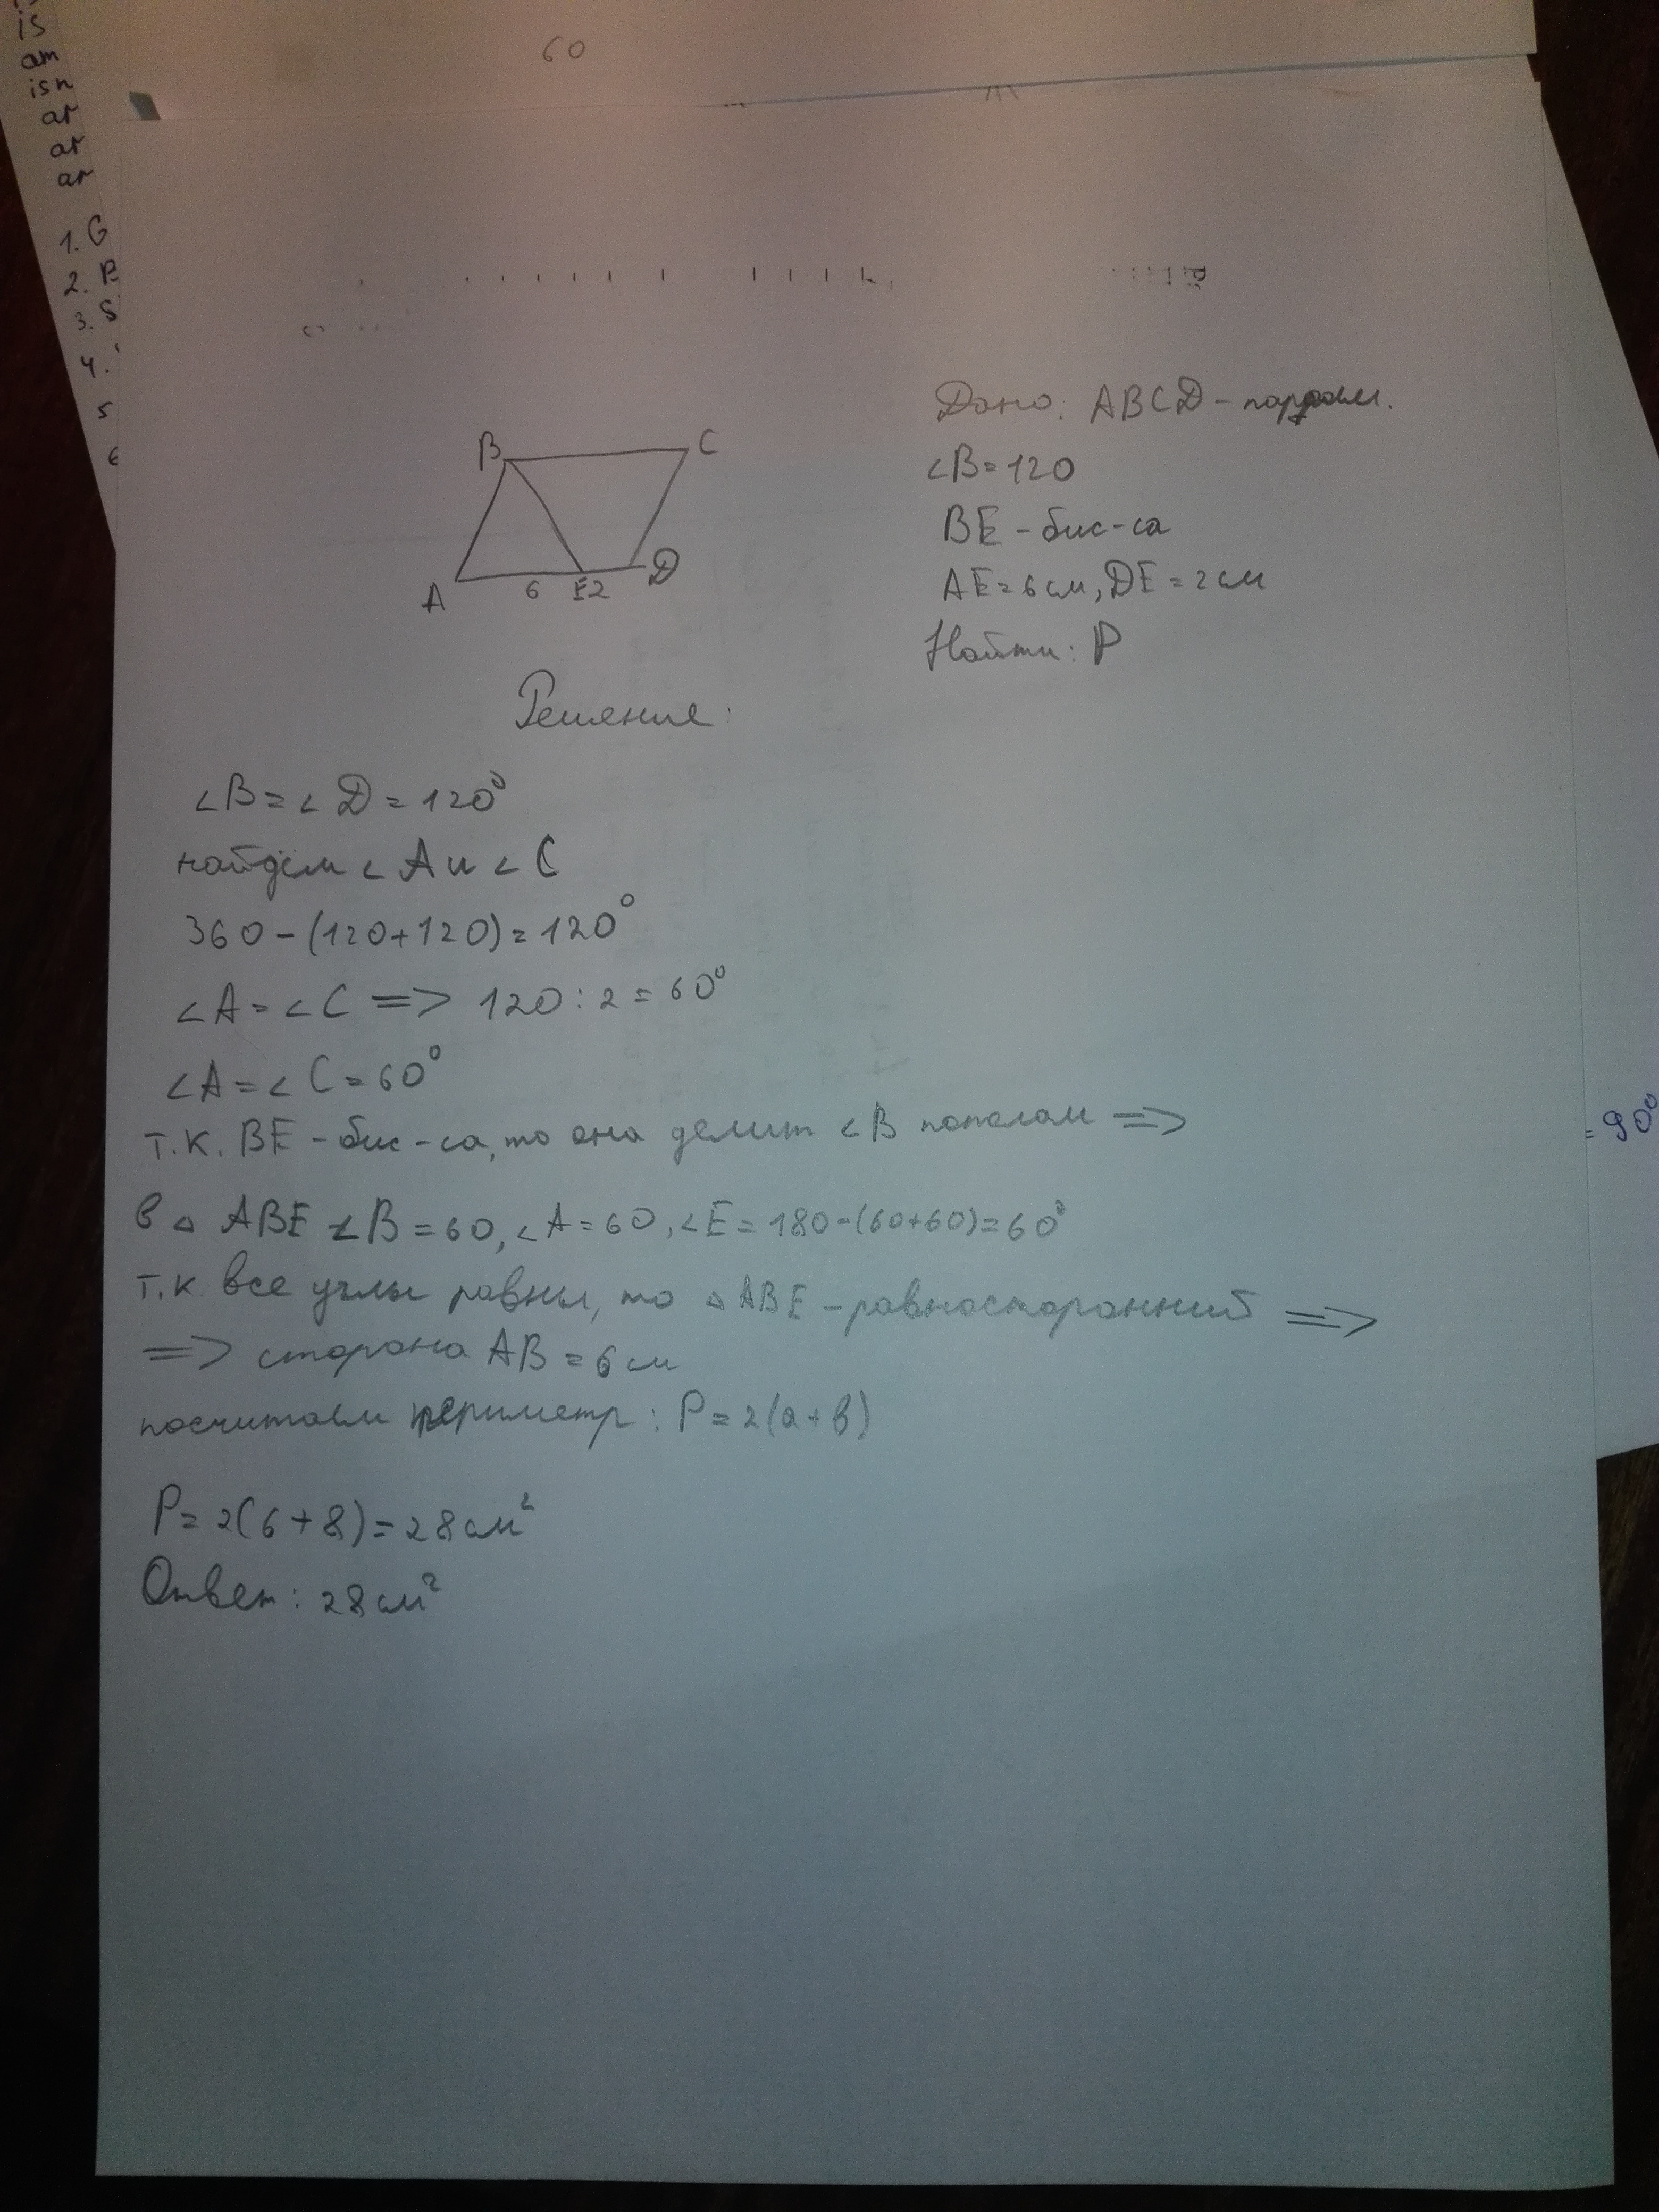 is
am
isn
ar
ar
ar
1. G
2. P
3. S
4.
5
6
60
B
C
A
6
E2
D
Дано: ABCD - паралл.
∠B=120
BE - бис-са
AE=6см, DE=2см
Найти: P
Решение:
∠B=∠D=120°
найдём ∠A и ∠C
360-(120+120)=120°
∠A=∠C => 120:2=60°
∠A=∠C=60°
т.к. BE - бис-са, то она делит ∠B пополам =>
в △ ABE ∠B=60, ∠A=60, ∠E=180-(60+60)=60°
т.к. все углы равны, то △ABE - равносторонний =>
=> сторона AB=6см
посчитаем периметр: P=2(a+b)
P=2(6+8)=28см²
Ответ: 28см²
=90°